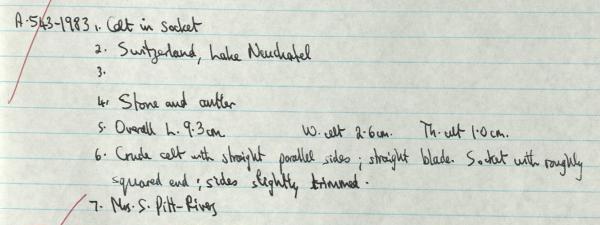 A.543-1983 1. Celt in socket
2. Switzerland, Lake Neuchatel
3.
4. Stone and antler
5. Overall L. 9.3cm W. celt 2.6cm. Th. celt 1.0cm.
6. Crude celt with straight parallel sides; straight blade. Socket with roughly
squared end; sides slightly trimmed.
7. Mrs. S. Pitt-Rivers